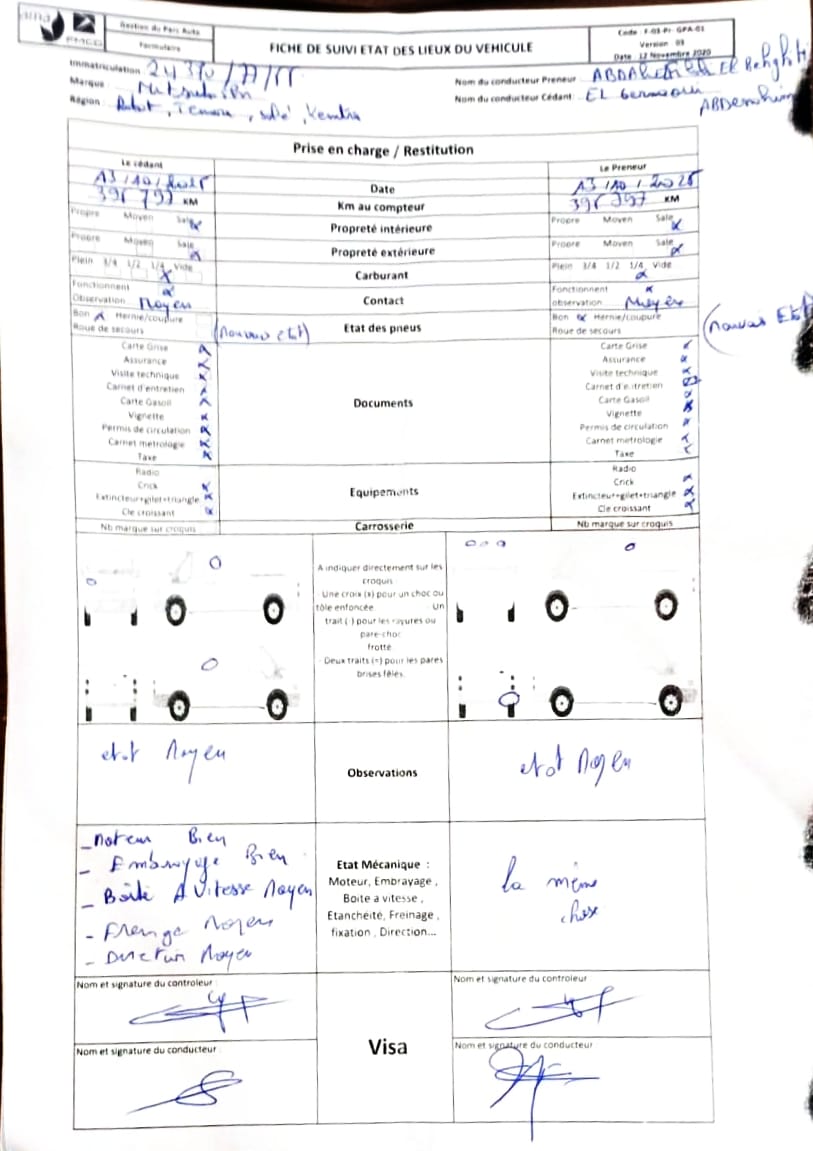 Gestion du Parc Auto
Formulaire
FICHE DE SUIVI ETAT DES LIEUX DU VEHICULE
Code : F-03-PI-GPA-01
Version 03
Date : 12 Novembre 2020
Immatriculation
Nom du conducteur Preneur
Marque
Nom du conducteur Cédant : EL
Région , Temara , salé , Kenitra
Prise en charge / Restitution
Le cédant Le Preneur
13/10/2025 Date 13/10/2025
395 797 KM Km au compteur 395 797 KM
Propre Moyen Sale x Propreté intérieure Propre Moyen Sale x
Propre Moyen Sale x Propreté extérieure Propre Moyen Sale x
Plein 3/4 1/2 1/4 Vide x Carburant Plein 3/4 1/2 1/4 Vide x
Fonctionnent x Contact Fonctionnent x
Observation Moyen observation Moyen
Bon x Hernie/coupure Etat des pneus Bon x Hernie/coupure
Roue de secours (mauvais etat) Roue de secours (mauvais Etat)
Carte Grise x Documents Carte Grise x
Assurance x Assurance x
Visite technique x Visite technique x
Carnet d'entretien x Carnet d'entretien x
Carte Gasoil x Carte Gasoil x
Vignette x Vignette x
Permis de circulation x Permis de circulation x
Carnet metrologie x Carnet metrologie x
Taxe x Taxe x
Radio Equipements Radio
Crick x Crick x
Extincteur+gilet+triangle x Extincteur+gilet+triangle x
Cle croissant x Cle croissant x
Nb marque sur croquis Carrosserie Nb marque sur croquis
A indiquer directement sur les
croquis
Une croix (x) pour un choc ou
tôle enfoncée Un
trait (-) pour les rayures ou
pare-choc
frotté
Deux traits (=) pour les pares
brises fêlés
etat Moyen Observations etat Moyen
- Moteur Bien
- Embrayage Bien
- Boite A Vitesse Moyen
- Moyen
- Moyen
Etat Mécanique :
Moteur, Embrayage ,
Boite a vitesse ,
Etanchéité, Freinage ,
fixation , Direction...
la même
chose
Nom et signature du controleur : Visa Nom et signature du controleur
Nom et signature du conducteur : Nom et signature du conducteur